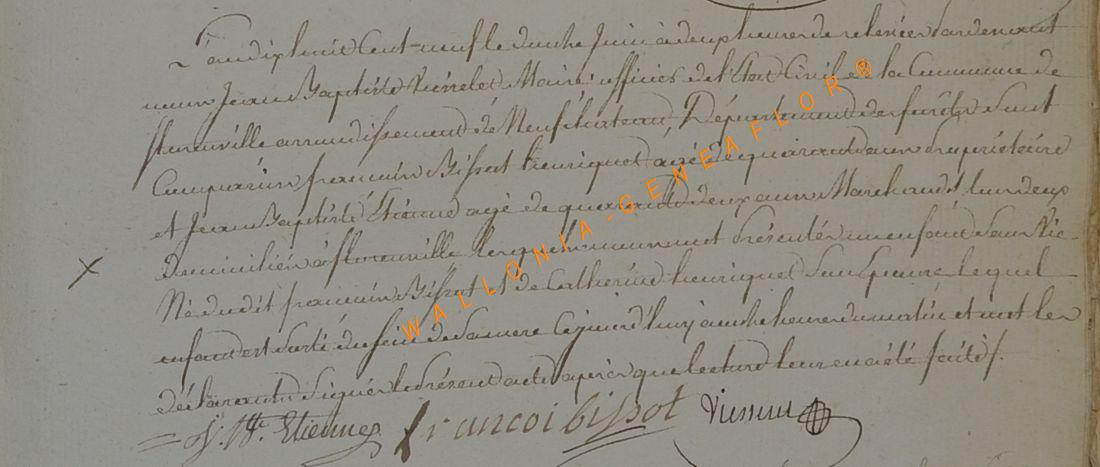 L'an dix huit Cent neuf le du Juin à deux heures de relevée Pardevant
nous Jean Baptiste Maire officier de l'Etat Civil de la Commune de
florenville arrondissement de Neufchateau, Département des forêts Sont
Comparus francois Bissot henriquet agé de quarante ans Proprietaire
et Jean Baptiste Etienne agé de quarante deux ans Marchand, tous deux
domiciliés à florenville lesquels nous ont Présenté un enfant Sans Vie
Né dudit francois Bissot et de Catherine henriquet Son Epouse lequel
enfant est Sorti du Sein de Sa mere Cejourd'huy à heure du matin et ont les
déclarants Signé le Présent acte après que lecture leur en a été faite.
J. Bte. Etienne francoi bissot
WALLONIA-GENEAFLOR®